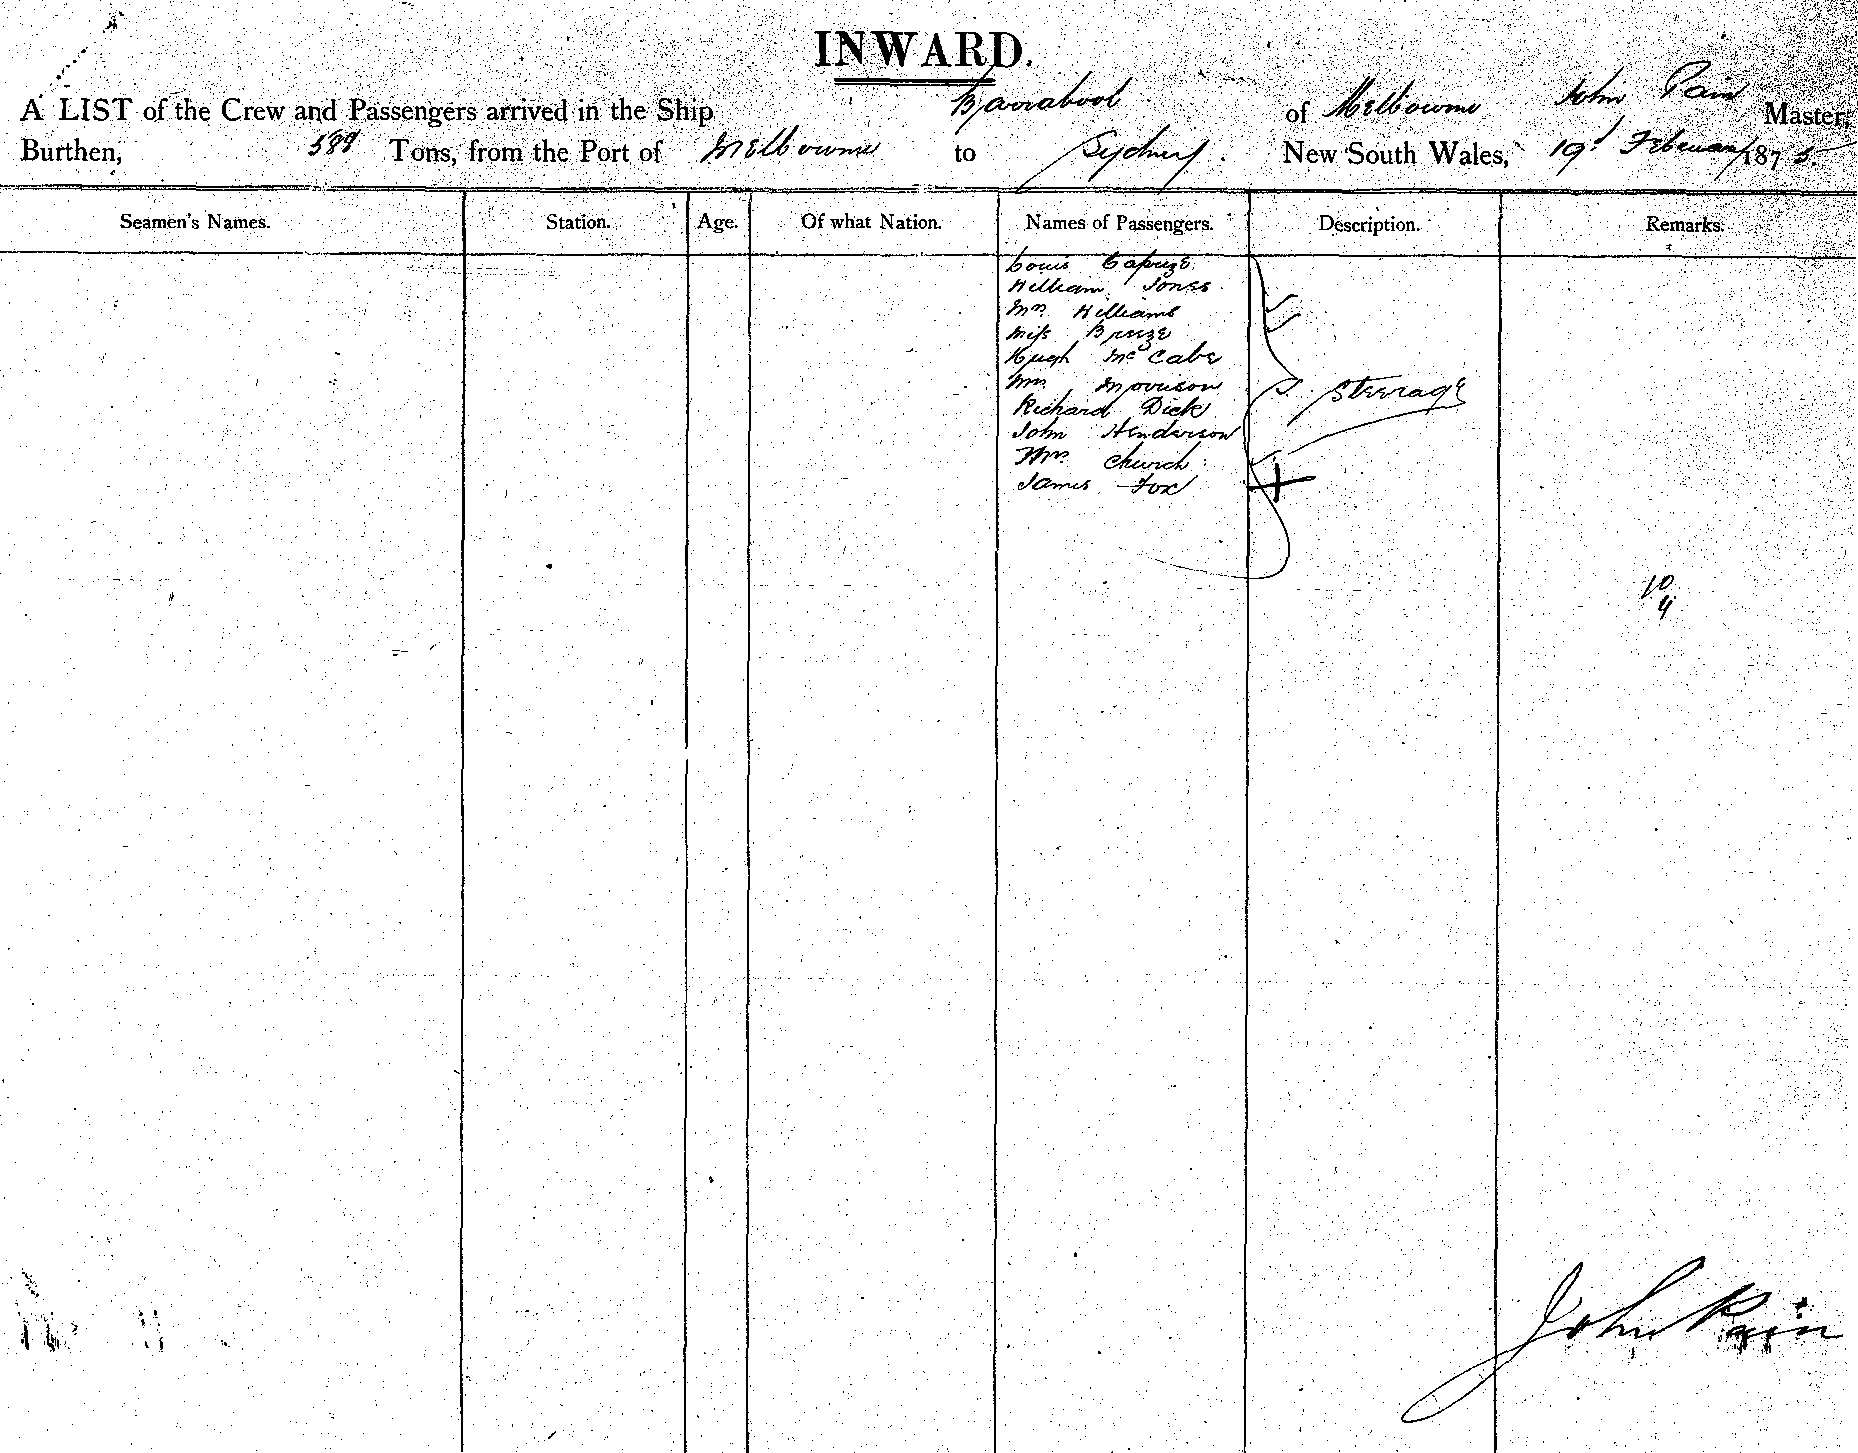 INWARD.
A LIST of the Crew and Passengers arrived in the Ship Barrabool of Melbourne John Pain Master,
Burthen, Tons, from the Port of Melbourne to Sydney. New South Wales, 19th February 1875
Seamen's Names. Station. Age. Of what Nation. Names of Passengers. Description. Remarks.
Louis
William Jones
Mrs Williams
Miss Breeze
Hugh McCabe
Mrs Morrison
S. Steerage
Richard Dick
John Henderson
Mrs Church
James Fox
10
4
John Pain